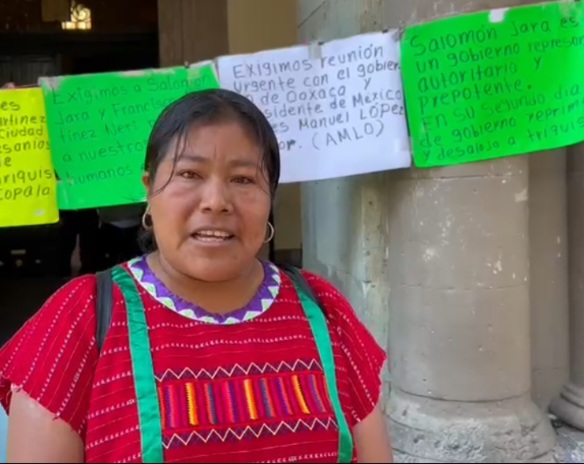 es
rtínez
Ciudad
esanías
de
triquis
copala
Exigimos a Salomón
Jara y Francisco
tínez Neri
a nuestros
humanos
Exigimos reunión
urgente con el gobier
de Oaxaca y
sidente de Mexico
es Manuel LÓPEZ
or. (AMLO)
Salomón Jara es
un gobierno represor
autoritario y
prepotente.
En su segundo dia
de gobierno reprim
y desalojo a triquis